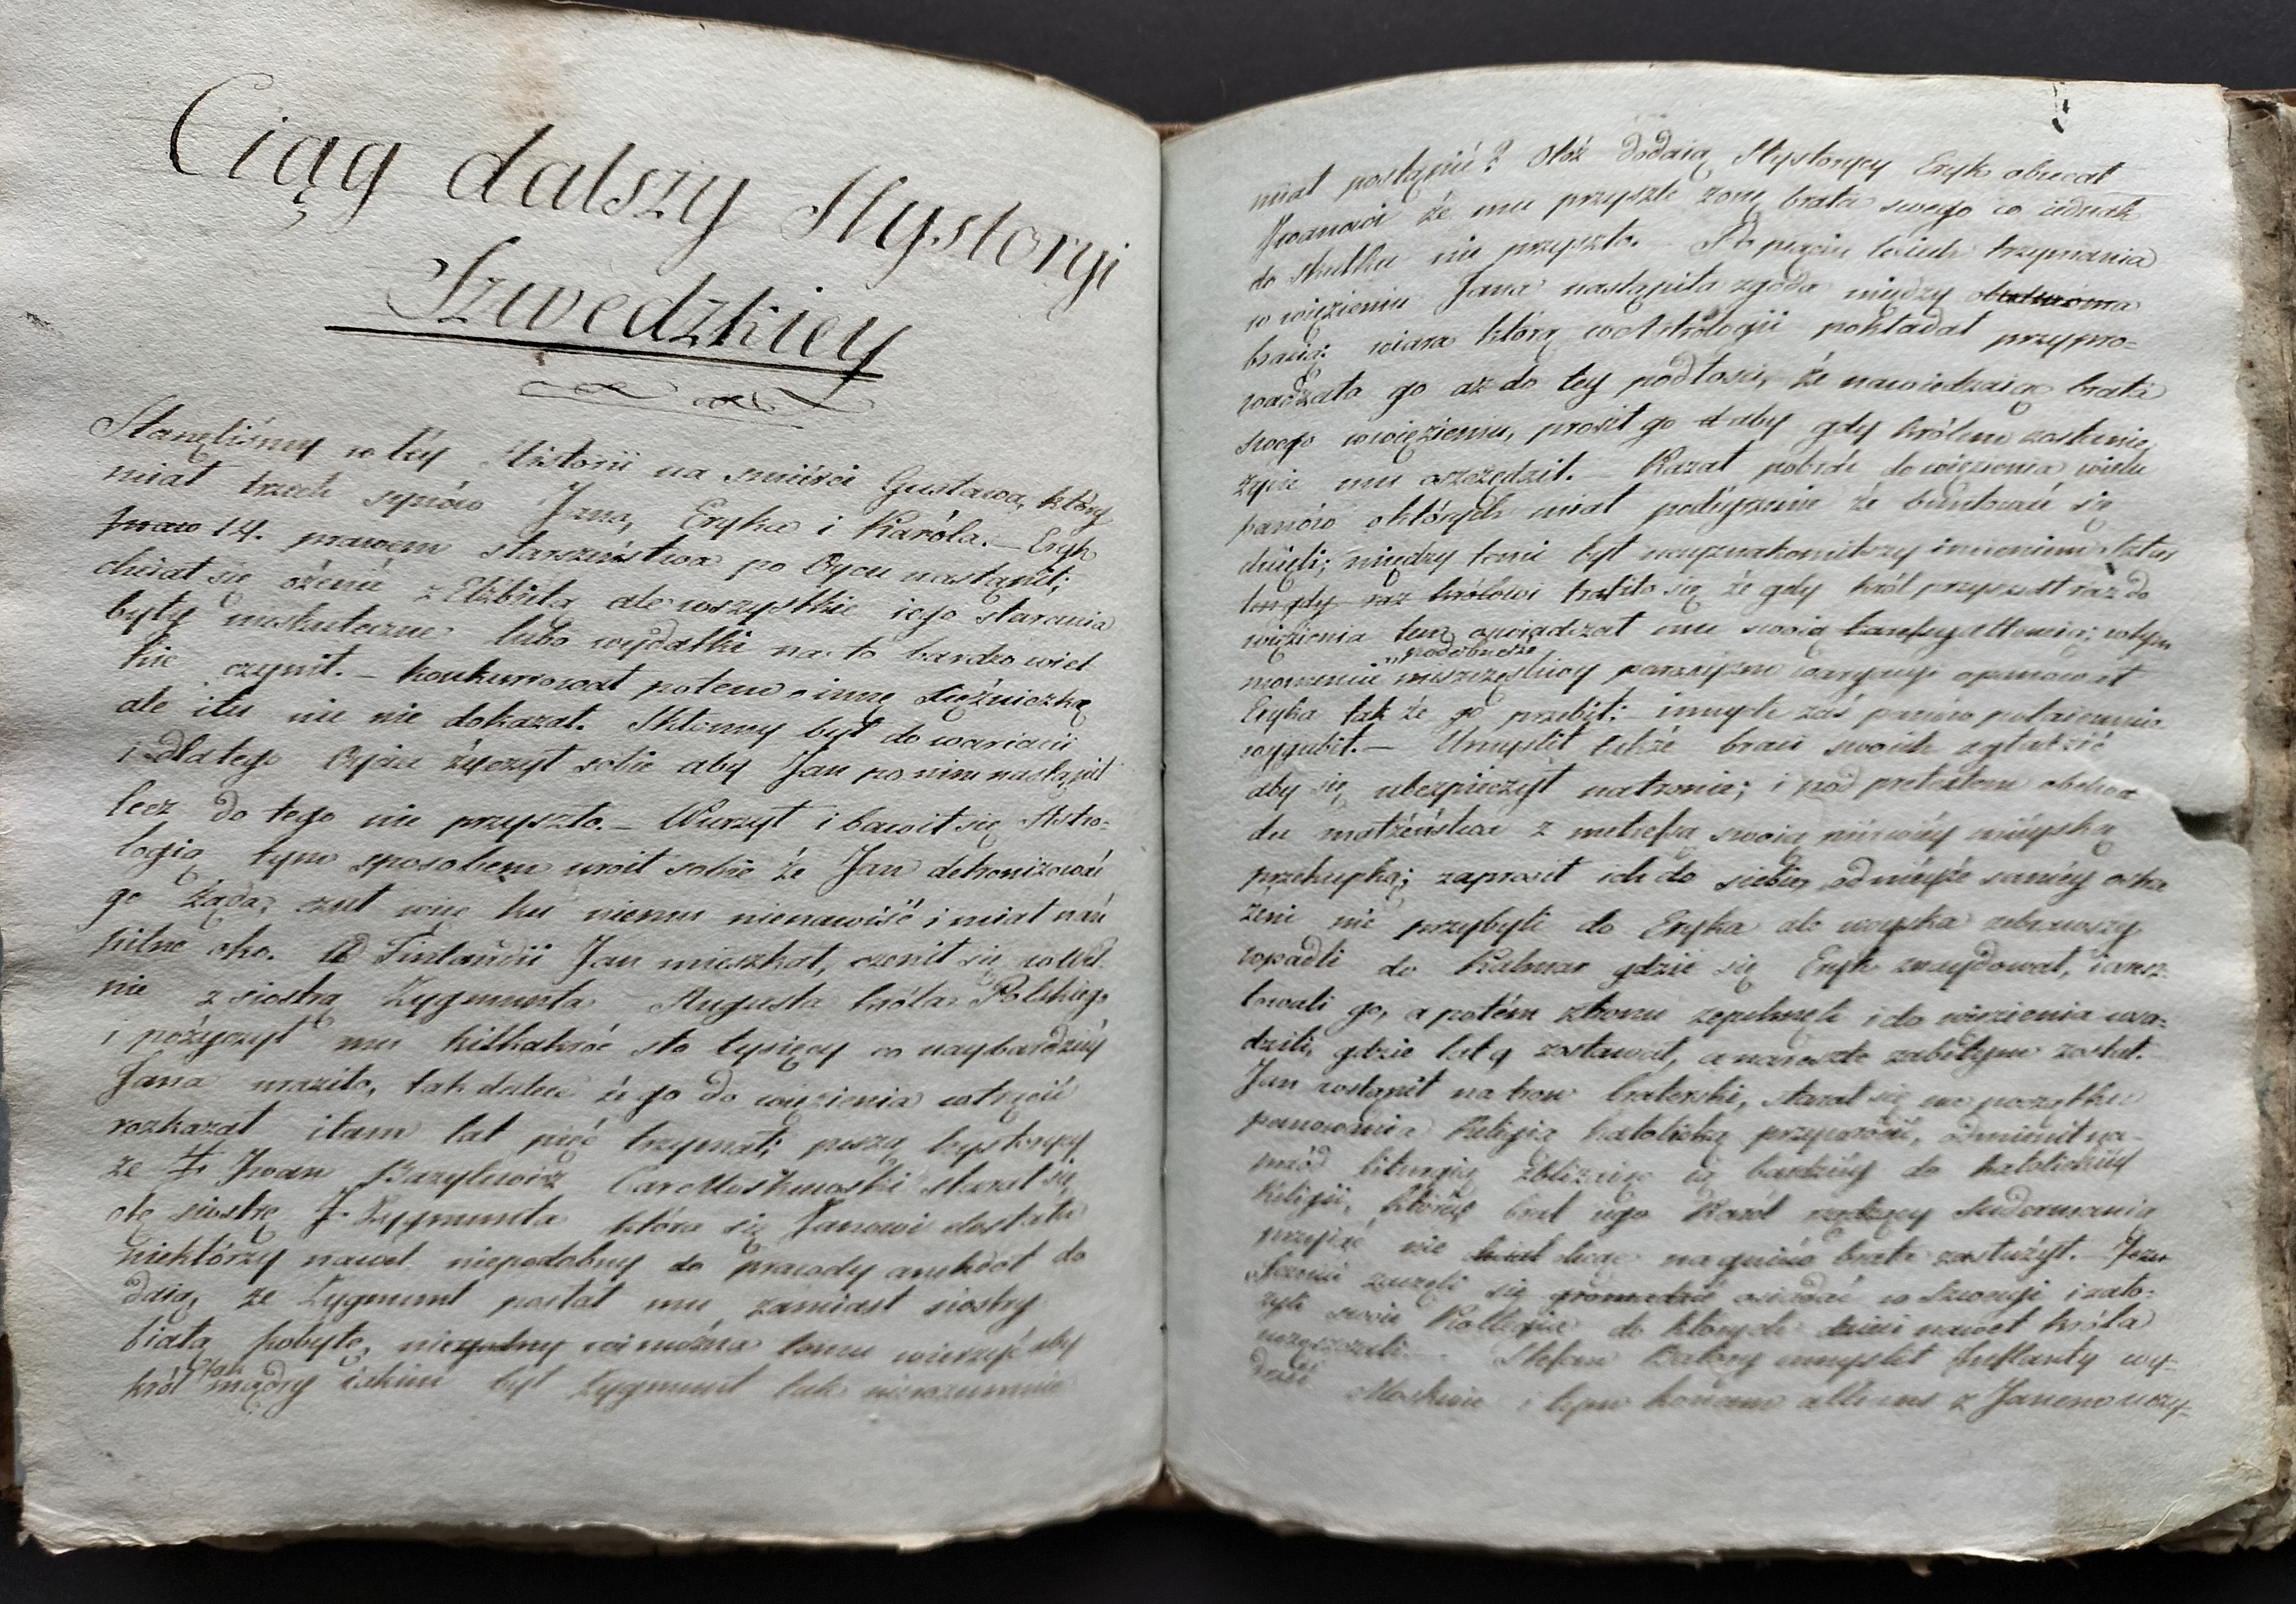 Ciąg dalszy Hystoryi
Szwedzkiey
Stanęliśmy w téy Historii na śmierci Gustawa, który
miał trzech synów Jana, Eryka i Karóla. – Eryk
14. prawem starszeństwa po Oycu nastąpił;
chciał się ożenić z Elżbietą ale wszystkie iego starania
były nieskuteczne lubo wydatki na to bardzo wiel
kie czynił. – Konkurował potem o inną Xiężniczkę
ale i tu nic nie dokazał. Skłonny był do wariacii
i dlatego Oyciec życzył sobie aby Jan po nim nastąpił
lecz do tego nie przyszło. – Wurzył i bawił się Astro-
logią tym sposobem uroił sobie że Jan detronizować
go żąda, czuł więc ku niemu nienawiść i miał nań
pilne oko. W Finlandii Jan mieszkał, ożenił się w Wil
nie z siostrą Zygmunta Augusta króla Polskiego
i pożyczył mu kilkakroć sto tysięcy co naybardziéy
Jana uraziło, tak dalece że go do więzienia wtrącić
rozkazał i tam lat pięć trzymał; piszą hystorycy
że Iwan Bazylewicz Car Moskiewski starał się
o tę siostrę Zygmunta która się Janowi dostała
niektórzy nawet niepodobny do prawdy anekdot do
daią, że Zygmunt posłał mu zamiast siostry
białą kobyłę, nie można temu wierzyć aby
król tak mądry iakim był Zygmunt tak nierozumnie
miał postąpić? Otóż dodaią Hystorycy Eryk obiecał
Iwanowi że mu przyszle żonę brata swego co iednak
do skutku nie przyszło. – Po pięciu leciech trzymania
w więzieniu Jana nastąpiła zgoda między
bracią: wiara którą w Astrologii pokładał przypro-
wadzała go aż do tey podłości, że nawiedzaiąc brata
swego w więzieniu, prosił go aby gdy królem zostanie
życie mu oszczędził. – Kazał pobrać do więzienia wielu
panów o których miał podeyrzenie że buntować się
chcieli; między temi był nayznakomitszy imieniem Sztur
królowi trafiło się że gdy król przyszedł raz do
więzienia ten oswiadczał mu swoią attencią; w tym
momencie nieszczęśliwy paroxyzm waryacyi opanował
Eryka tak że go przebił; – innych zaś panów potaiemnie
wygubił. – Umyślił także braci swoich zgładzić
aby się ubezpieczył na tronie; i pod pretextem obcho
du małżeństwa z metressą swoią mieyską
przekupką; zaprosił ich do siebie, od niéyże saméy ostrze
żeni nie przybyli do Eryka ale woyska zebrawszy
wpadli do Kalmar gdzie się Eryk znaydował, i aresz-
towali go, a potém z tronu zepchnęli i do więzienia wsa-
dzili, gdzie lat 9 zostawał, a nareszte zabitym został.
Jan wstąpił na tron braterski, starał się na początku
panowania Religią Katolicką przywrócić, odmienił na-
przód liturgią zbliżaiąc ią bardziéy do Katolickiéy
Religii, któréy brat iego Karól rządzący Sudermanią
przyiąć nie czego na gniéw brata zasłużył. – Jezu
zaczęli się osiadać w Szwecyi i zało-
żyli swoie Kollegia do których dzieci nawet króla
uczęszczali. – Stefan Batory umyślił Inflanty wy-
drzeć Moskwie i tym końcem allians z Janem uczy-